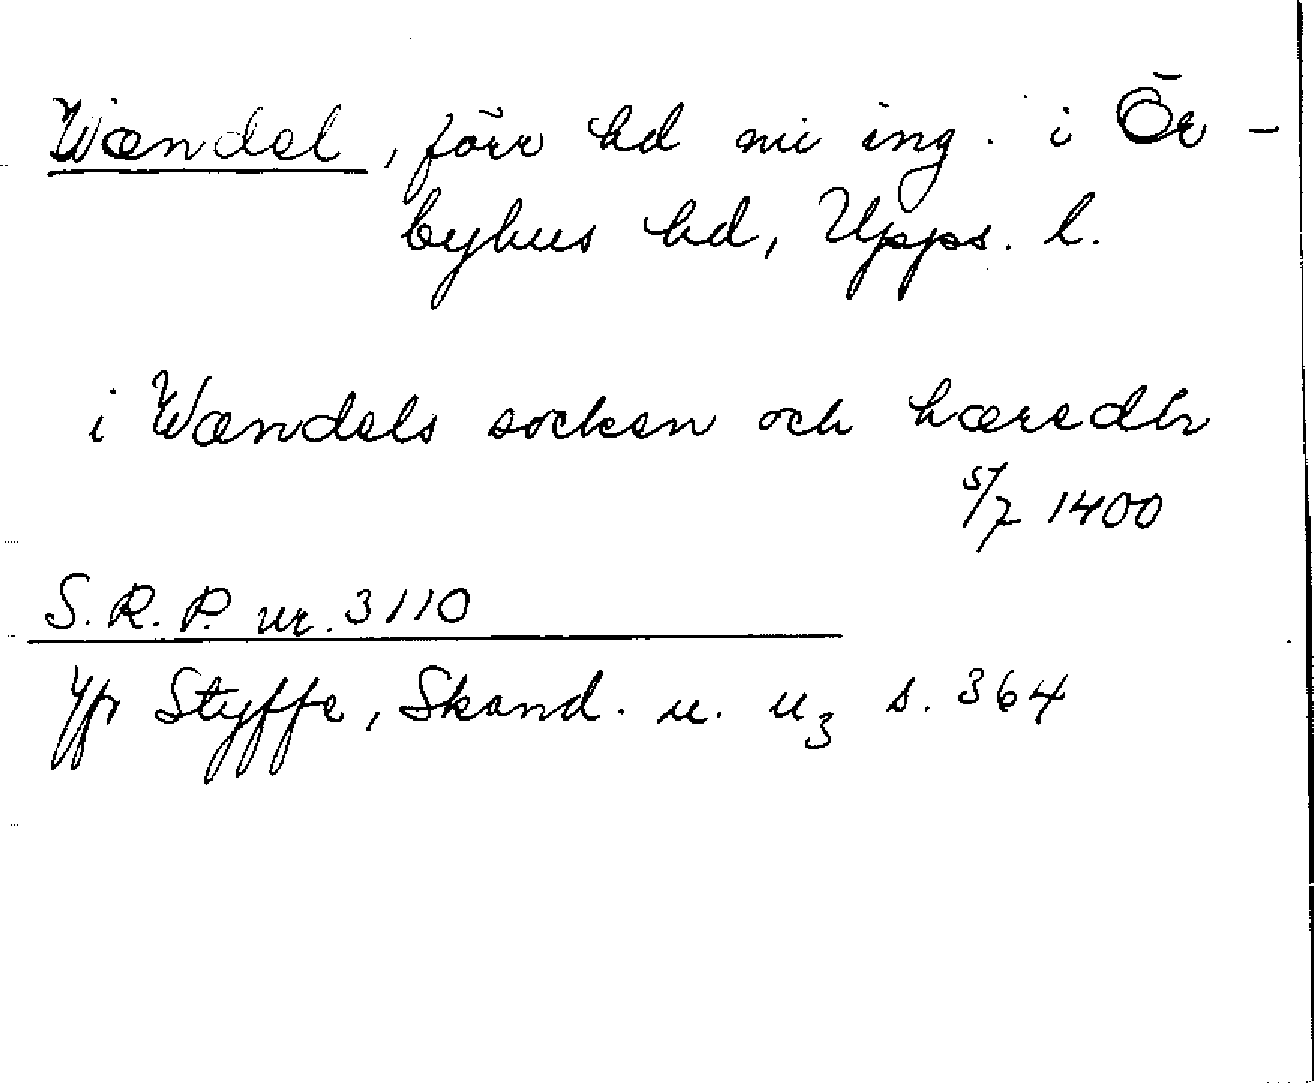 Wændel, förr hd nu ing. i Ör-
byhus hd, Upps. l.
i Wændels socken och hæredh
5/7 1400
S. R. P. nr. 3110
Jfr Styffe, Skand. u. u3 s. 364